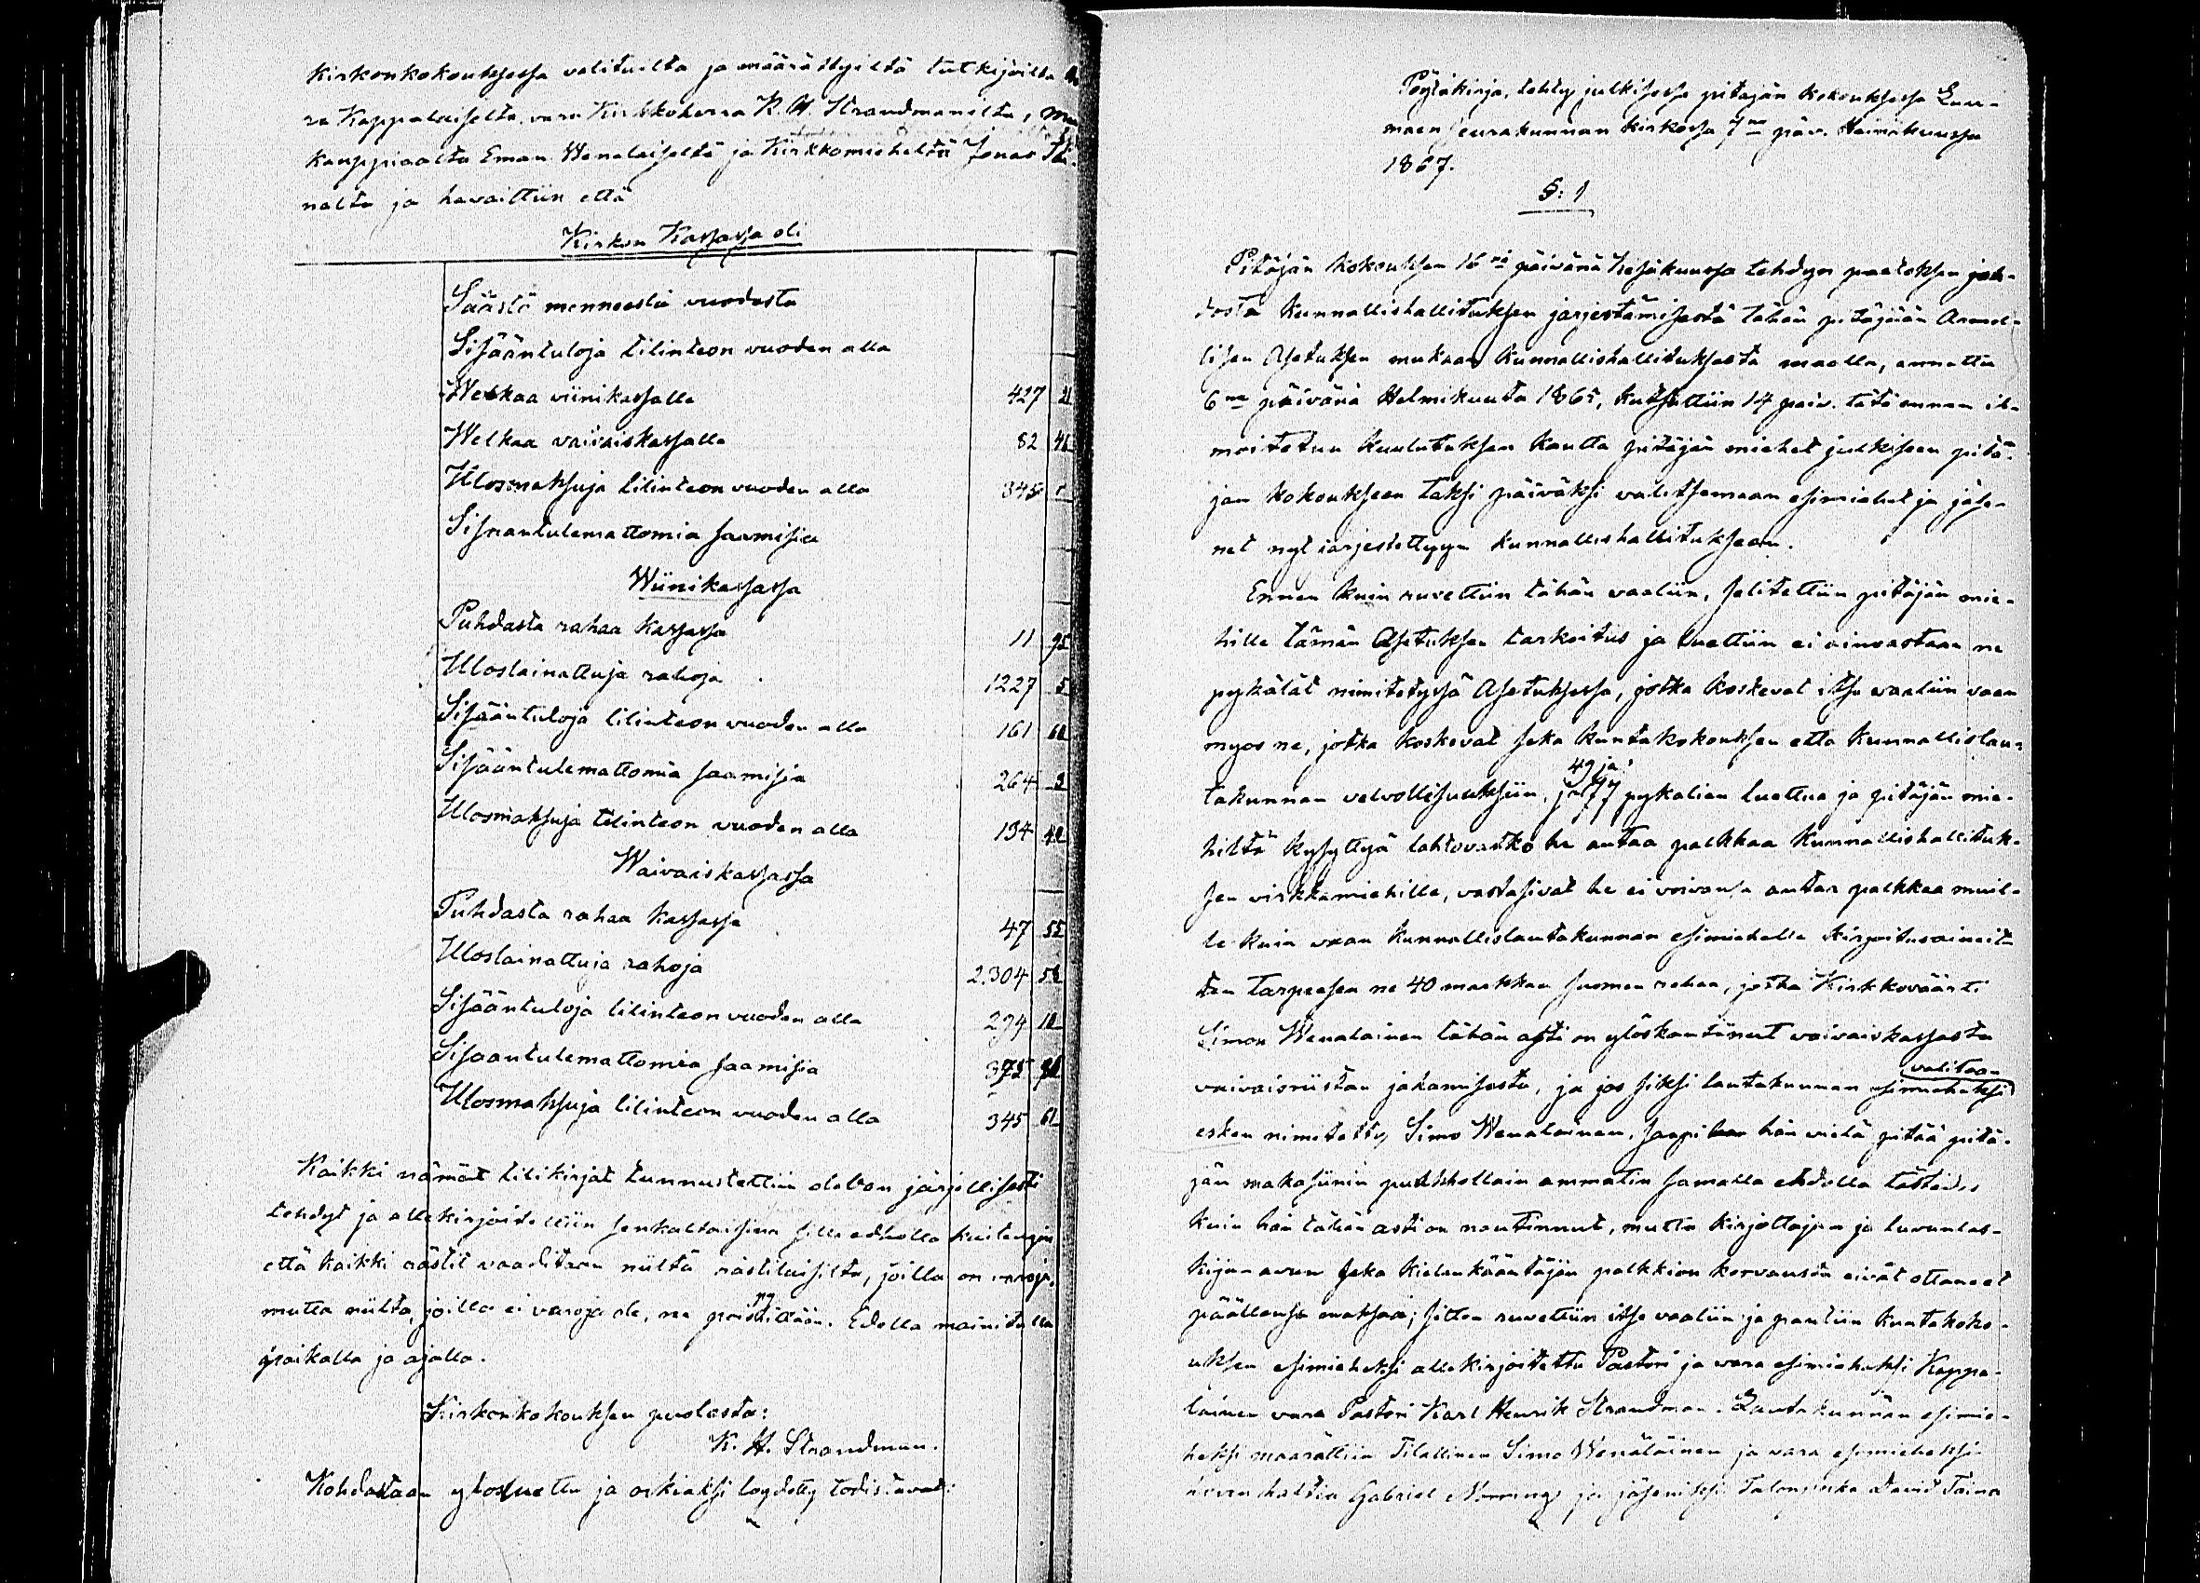 Kirkonkokouksessa valituilta ja määrätyiltä tutkijoilta
ra Kappalaiselta, vara Kirkkoherra K. H. Strandmanilta,
kauppiaalta Eman. Wenäläiseltä ja Kirkkomieheltä Jonas
nalta ja havaittiin että
Kirkon Kassassa oli
Säästö menneestä vuodesta
Sisääntuloja tilinteon vuoden alla
Welkaa viinikassalle 427 21
Welkaa vaivaiskassalle 82 46
Ulosmaksuja tilinteon vuoden alla 345
Sisääntulemattomia saamisia
Wiinikassassa
Puhdasta rahaa kassassa 11 95
Uloslainattuja rahoja 1227 5
Sisääntuloja tilinteon vuoden alla 161 60
Sisääntulemattomia saamisia 264 9
Ulosmaksuja tilinteon vuoden alla 134 42
Waivaiskassassa
Puhdasta rahaa kassassa 47 55
Uloslainattuja rahoja 2.304 58
Sisääntuloja tilinteon vuoden alla 294 10
Sisaantulemattomia saamisia 375
Ulosmaksuja tilinteon vuoden alla 345 61
Kaikki nämät tilikirjat tunnustettiin olevan järjellisesti
tehdyt ja allekirjoitettiin senkaltaisina sillä ehdolla kuitengin
että kaikki rästit vaaditaan niiltä rästiläisiltä, joilla on varoja,
mutta niiltä, joilla ei varoja ole, ne poispyyhitään. Edellä mainitulla
paikalla ja ajalla.
Kirkonkokouksen puolesta:
K. H. Strandman.
Kohdastaan ylösluettu ja oikiaksi löydetty todistavat:
Pöytäkirja, tehty julkisessa pitäjän kokouksessa Luu-
mäen seurakunnan kirkossa 7nä päiv. Heinäkuussa
1867.
§: 1
Pitäjän kokouksen 16nä päivänä kesäkuussa tehdyn paatoksen joh-
dosta Kunnallishallituksen järjestämisestä tähän pitäjään Armol-
lisen Asetuksen mukaan Kunnallishallituksesta maalla, annettu
6na päivänä Helmikuuta 1865, kutsuttiin 14 paiv. tätä ennen il-
moitetun kuulutuksen kautta pitäjän miehet julkiseen pitä-
jan kokoukseen täksi päiväksi valitsemaan esimiehet ja jäse-
net nyt järjestettyyn kunnallishallitukseen.
Ennen kuin ruvettiin tähän vaaliin, selitettiin pitäjän mie-
hille tämän Asetuksen tarkoitus ja luettiin ei ainoastaan ne
pykälät nimitetyssä Asetuksessa, jotka koskevat itse vaaliin vaan
myös ne, jotka koskevat seka kuntakokouksen etta kunnallislau-
takunnan velvollisuuksiin, 49 ja pykalien luettua ja pitäjän mie-
hiltä kysyttyä lahtovatko he antaa palkkaa Kunnallishallituk-
sen virkkamiehille, vastasivat he ei voivansa antaa palkkaa muil-
le kuin vaan kunnallislautakunnan esimiehelle kirjoitusaineit-
ten tarpeesen ne 40 markkaa suomen rahaa, jotka Kirkkoväärti
Simon Wenalainen tähän asti on ylöskantanut vaivaiskassasta
vaivaisviistan jakamisesta, ja jos siksi lautakunnan esimieheksi valitaan
esken nimitetty Simo Wenäläinen, saapi hän vielä pitää pitä-
jän makasiinin puukhollain ammatin samalla ehdolla tästedes
kuin hän tähän asti on nautinnut, mutta kirjottajan ja luvunlas-
kijan avun seka kielenkääntäjän palkkion korvausta eivät ottaneet
päällensä maksaa; sitten ruvettiin itse vaaliin ja pantiin kuntakoko-
uksen esimieheksi allekirjoitettu Pastori ja vara esimieheksi Kappa-
lainen vara Pastori Karl Henrik Strandman. Lautakunnan esimie-
heksi maarattiin Tilallinen Simo Wenäläinen ja vara esimieheksi
Gabriel ja jäseniksi Talonpoika David Taina